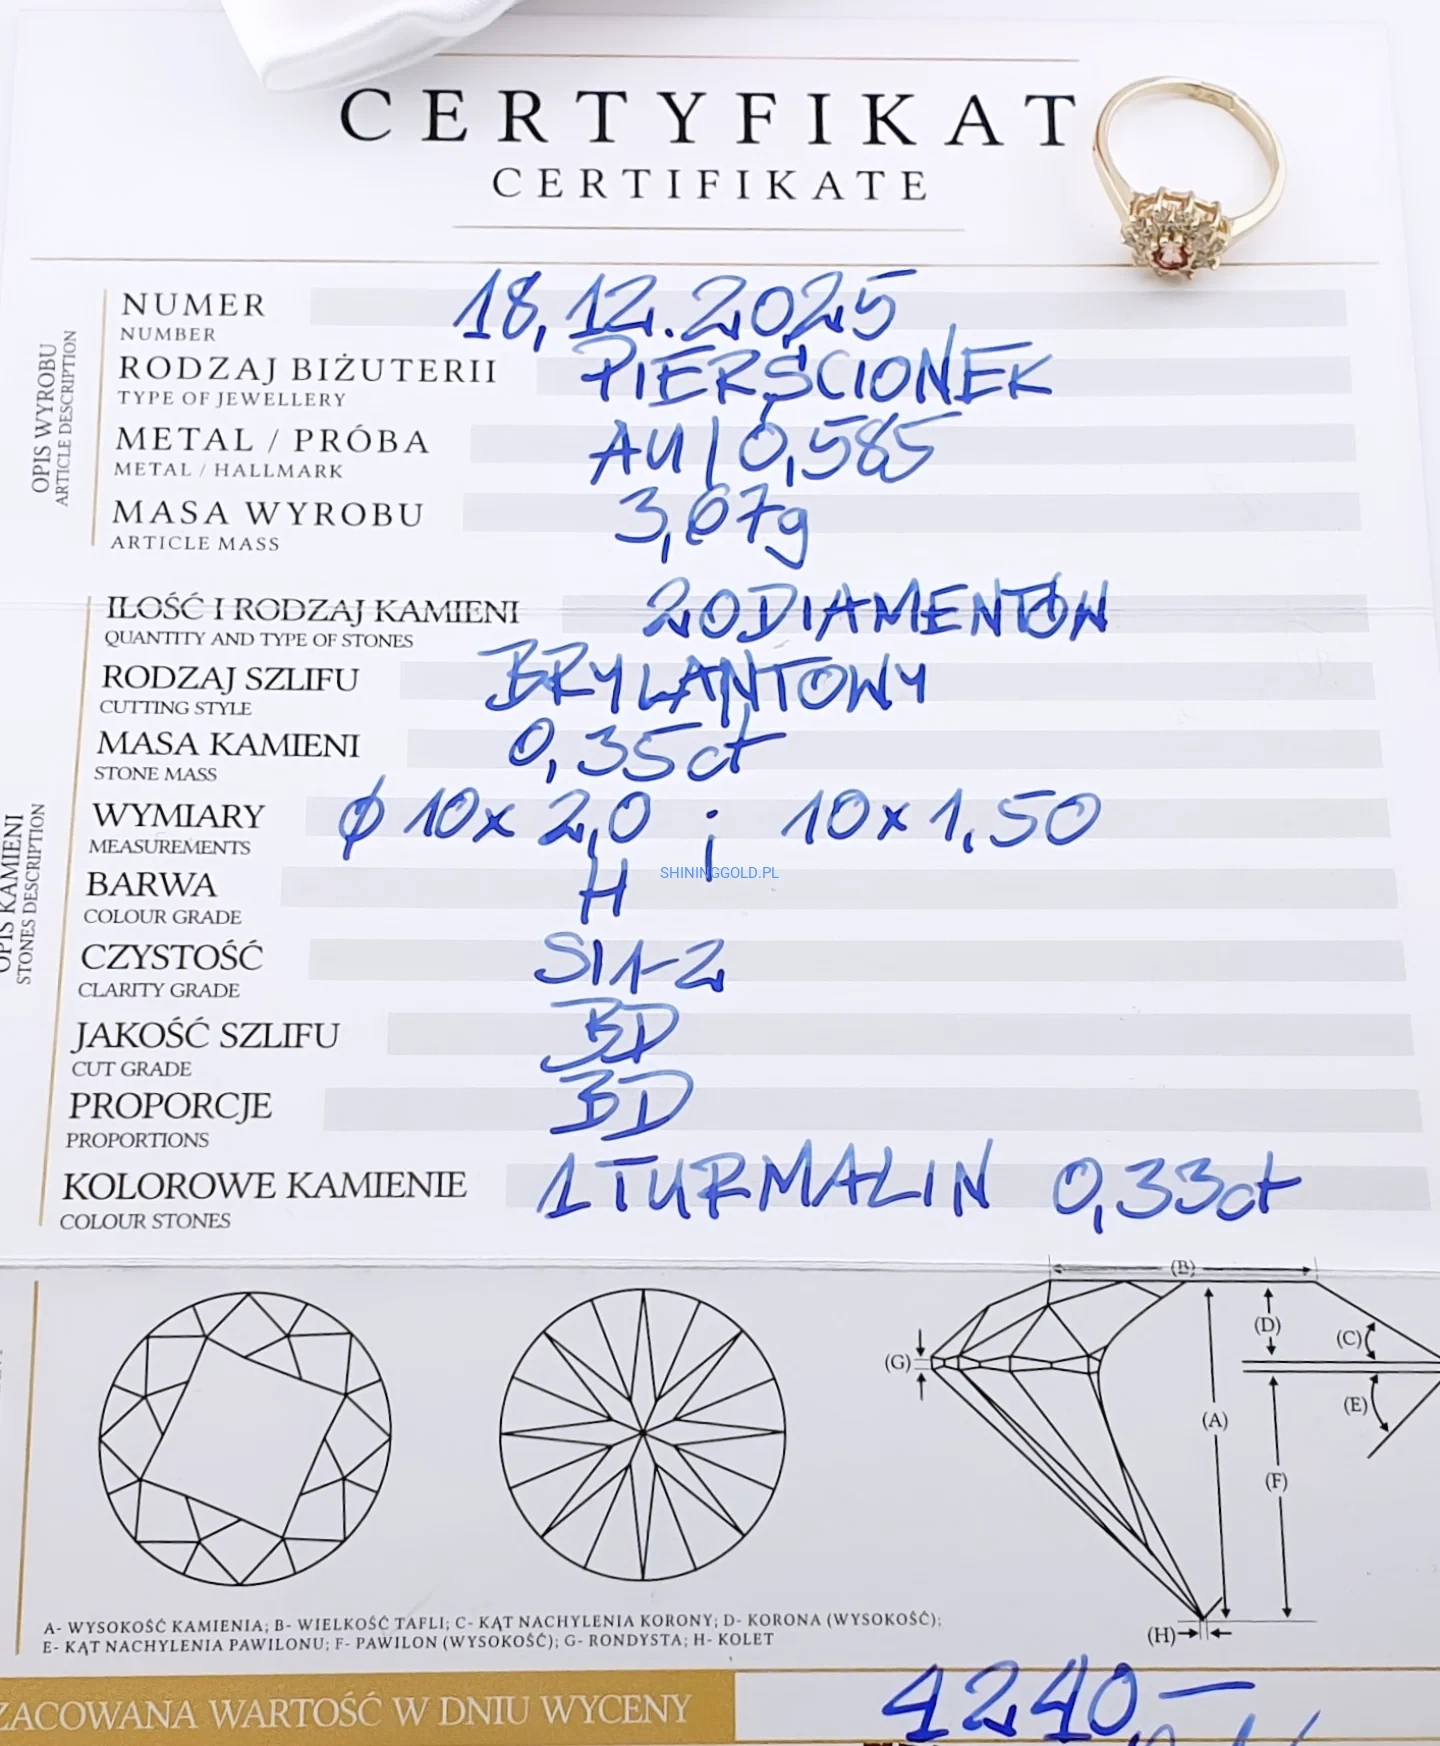 CERTYFIKAT
CERTIFIKATE
NUMER 18,12.2025
NUMBER
RODZAJ BIŻUTERII PIERŚCIONEK
TYPE OF JEWELLERY
METAL / PRÓBA AU/0,585
METAL / HALLMARK
MASA WYROBU 3,07g
ARTICLE MASS
OPIS WYROBU
ARTICLE DESCRIPTION
ILOŚĆ I RODZAJ KAMIENI 20 DIAMENTÓW
QUANTITY AND TYPE OF STONES
RODZAJ SZLIFU BRYLANTOWY
CUTTING STYLE
MASA KAMIENI 0,35ct
STONE MASS
WYMIARY ϕ 10x2,0 ; 10x1,50
MEASUREMENTS
SHININGGOLD.PL
BARWA H
COLOUR GRADE
CZYSTOŚĆ SI1-2
CLARITY GRADE
JAKOŚĆ SZLIFU BD
CUT GRADE
PROPORCJE BD
PROPORTIONS
KOLOROWE KAMIENIE 1 TURMALIN 0,33ct
COLOUR STONES
OPIS KAMIENI
STONES DESCRIPTION
(B)
(D)
(C)
(G)
(E)
(A)
(F)
(H)
A- WYSOKOŚĆ KAMIENIA; B- WIELKOŚĆ TAFLI; C- KĄT NACHYLENIA KORONY; D- KORONA (WYSOKOŚĆ);
E- KĄT NACHYLENIA PAWILONU; F- PAWILON (WYSOKOŚĆ); G- RONDYSTA; H- KOLET
ZACOWANA WARTOŚĆ W DNIU WYCENY 4240,—